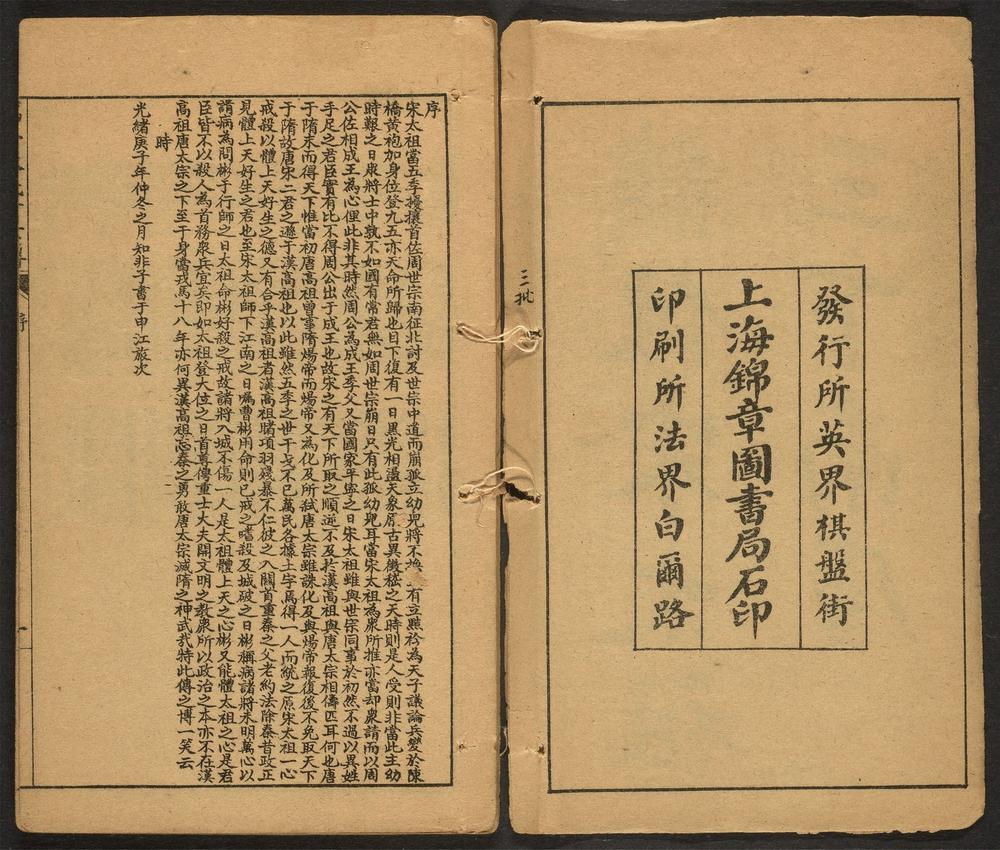 發行所英界棋盤街
上海錦章圖書局石印
印刷所法界白爾路
三批
序
宋太祖當五季擾攘首佐周世宗南征北討及世宗中道而崩孤立幼兒將不換有立點於為天子議論兵變於陳
橋黃袍加身位登九五亦天命所歸也日下復有一日黑光相盪天象原古異徵稽之天時則是人受則非當此主幼
時艱之日眾將士中孰不如國有常君無如周世宗崩日只有此孤幼兒耳當宋太祖為眾所推亦當却眾請而以周
公佐相成王為心俚此非其時然周公為成王季父又當國家平寧之日宋太祖雖與世宗同事於初然不過以異姓
手足之君臣實有比不得周公出于成王也故宋之有天下所取之順逆不及於漢高祖與唐太宗相儔匹耳何也唐
于隋末而得天下惟當初唐高祖曾事隋煬帝而煬帝又為化及所弒唐太宗雖誅化及與煬帝報復後不免取天下
于隋故唐宋二君之遜于漢高祖也以此雖然五季之世干戈不已萬民各據土字焉得一人而統之原宋太祖一心
戒殺以體上天好生之德又有合乎漢高祖者漢高祖睹項羽殘暴不仁彼之入關首重秦之父老約法除秦昔政正
見體上天好生之君也至宋太祖師下江南之日囑曹彬用命則已戒之嗜殺及城破之日彬稱病諸將未明萬心以
請病為問彬于行師之日太祖命彬好殺之戒故諸將入城不傷一人是太祖體上天之心彬又能體太祖之心是君
臣皆不以殺人為首務眾兵宜矣即如太祖登大位之日首尊傳重士大夫開文明之教眾所以政治之本亦不在漢
高祖唐太宗之下至于身當戎馬十八年亦何異漢高祖忘秦之勇敢唐太宗滅隋之神武哉特此傳之博一笑云
時
光緒庚子年仲冬之月知非子書于申江旅次
序
一